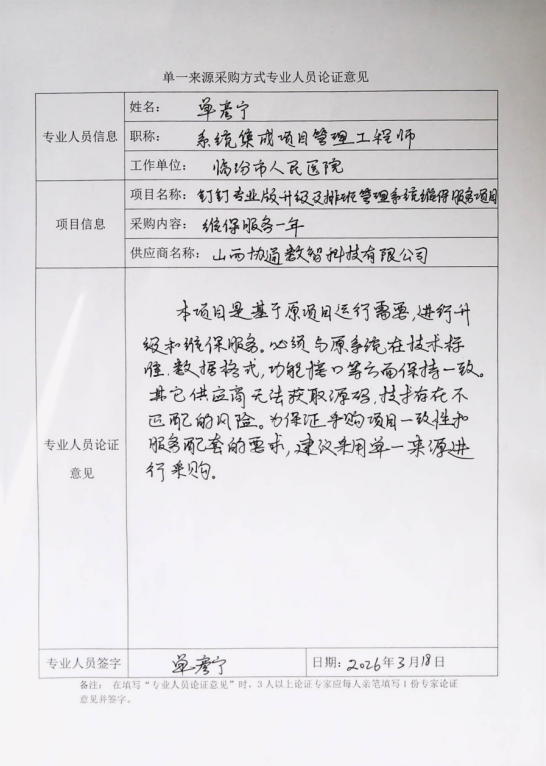 单一来源采购方式专业人员论证意见
专业人员信息
姓名：单彦宁
职称：系统集成项目管理工程师
工作单位：临汾市人民医院
项目信息
项目名称：钉钉专业版升级及排班管理系统维保服务项目
采购内容：维保服务一年
供应商名称：山西协通数智科技有限公司
专业人员论证
意见
本项目是基于原项目运行需要，进行升
级和维保服务。必须与原系统在技术标
准，数据格式，功能接口等方面保持一致。
其它供应商无法获取源码，技术存在不
匹配的风险。为保证采购项目一致性和
服务配套的要求，建议采用单一来源进
行采购。
专业人员签字
单彦宁
日期：2026年3月18日
备注： 在填写“专业人员论证意见”时，3人以上论证专家应每人亲笔填写1份专家论证
意见并签字。